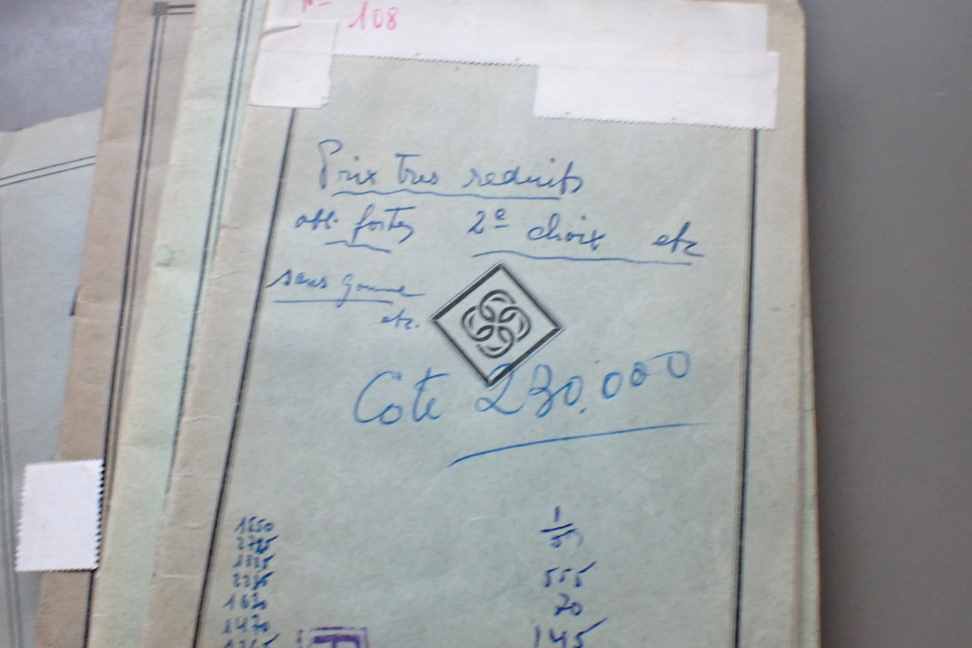 Nº 108
Prix tres reduits
obl. fortes 2e choix etc
sans gomme
etc.
Cote 230.000
1550
2775
1630
1470
555
70
145